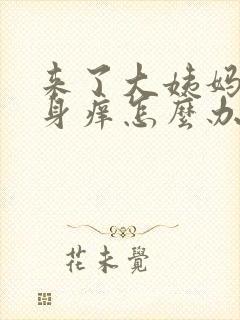 来了大姨妈
身痒怎麼办
花未覺